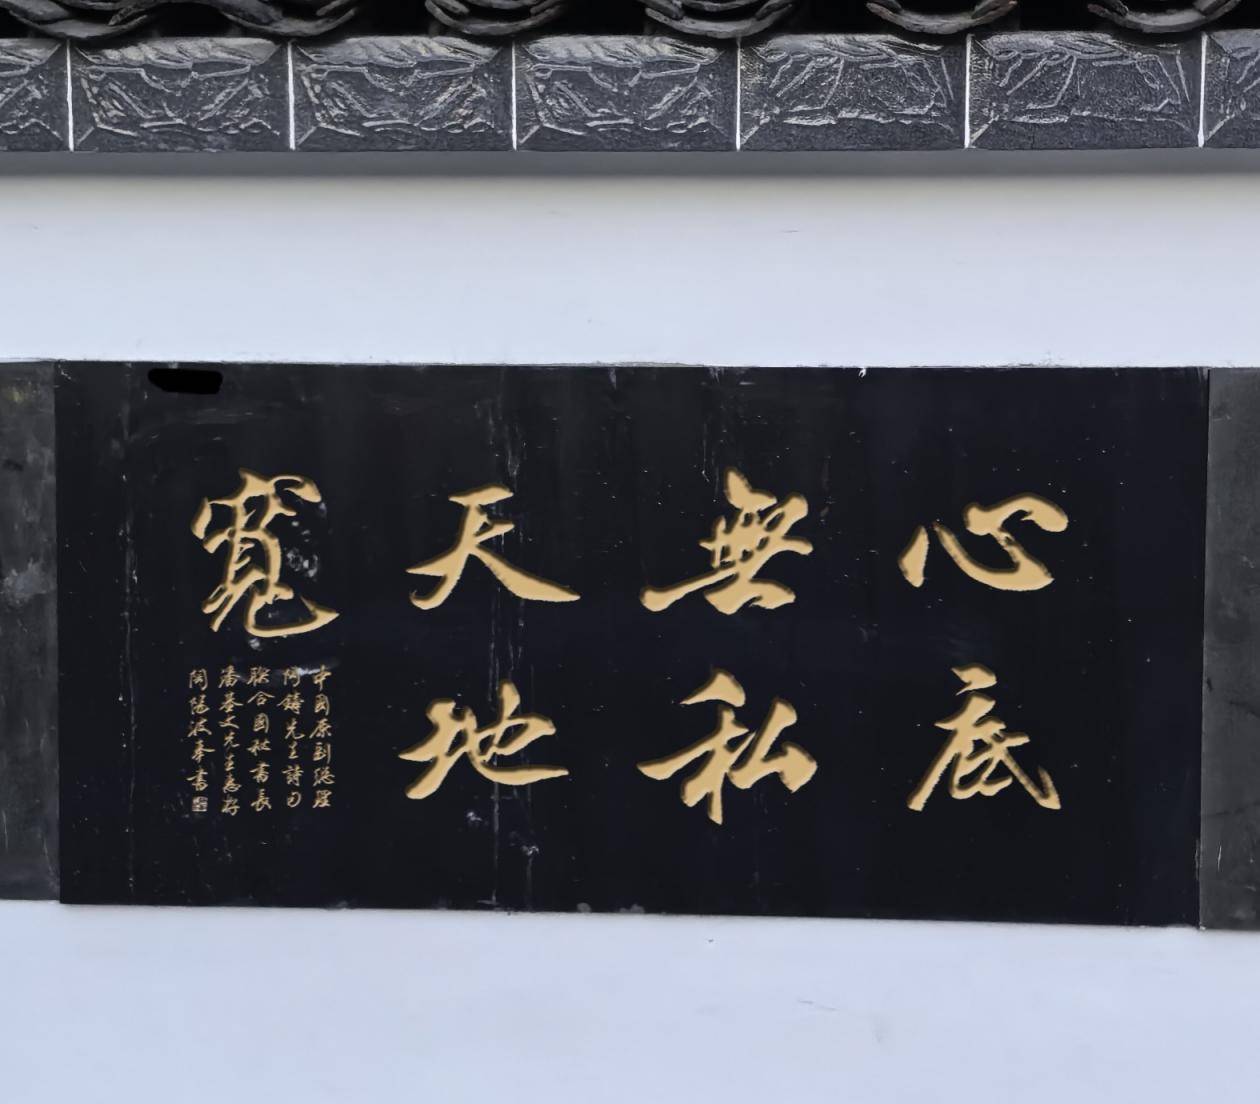 心底
無私
天地
寬
中國原副總理
陶鑄先生詩句
聯合國秘書長
潘基文先生惠存
陶陽波奉書